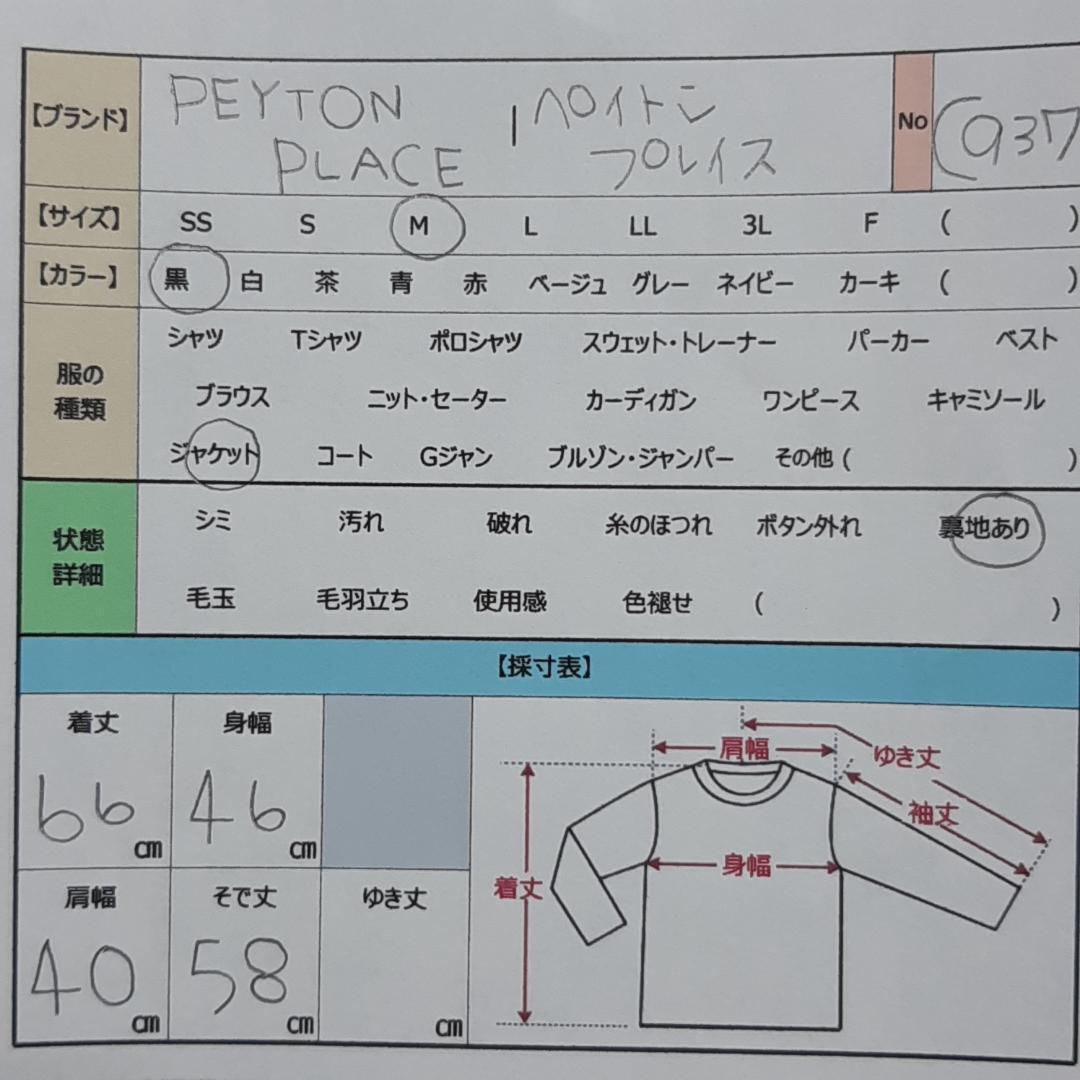 【ブランド】 PEYTON PLACE | ペイトン プレイス No (937
【サイズ】 SS S M L LL 3L F ( )
【カラー】 黒 白 茶 青 赤 ベージュ グレー ネイビー カーキ ( )
服の種類
シャツ Tシャツ ポロシャツ スウェット・トレーナー パーカー ベスト
ブラウス ニット・セーター カーディガン ワンピース キャミソール
ジャケット コート Gジャン ブルゾン・ジャンパー その他 ( )
状態詳細
シミ 汚れ 破れ 糸のほつれ ボタン外れ 裏地あり
毛玉 毛羽立ち 使用感 色褪せ ( )
【採寸表】
着丈 身幅
66 cm 46 cm
肩幅 そで丈 ゆき丈
40 cm 58 cm cm
肩幅 ゆき丈
袖丈
身幅
着丈